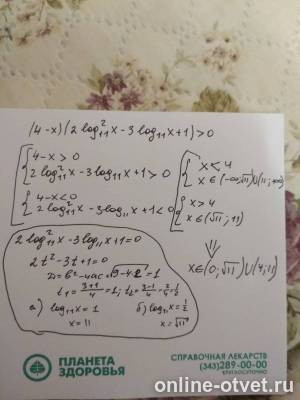 (4-x)(2log²₁₁x-3log₁₁x+1)>0
4-x>0
2log²₁₁x-3log₁₁x+1>0
x<4
x∈(-∞;√11)∪(11;+∞)
4-x<0
2log²₁₁x-3log₁₁x+1<0
x>4
x∈(√11;11)
⇓
x∈(0;√11)∪(4;11)
2log²₁₁x-3log₁₁x+1=0
2t²-3t+1=0
D=b²-4ac=√9-4·2=1
t₁=3+1/4=1; t₂=3-1/4=2/4=1/2
а) log₁₁x=1
x=11
б) log₁₁x=1/2
x=√11
ПЛАНЕТА
ЗДОРОВЬЯ
СПРАВОЧНАЯ ЛЕКАРСТВ
(343)289-00-00
КРУГЛОСУТОЧНО
online-otvet.ru